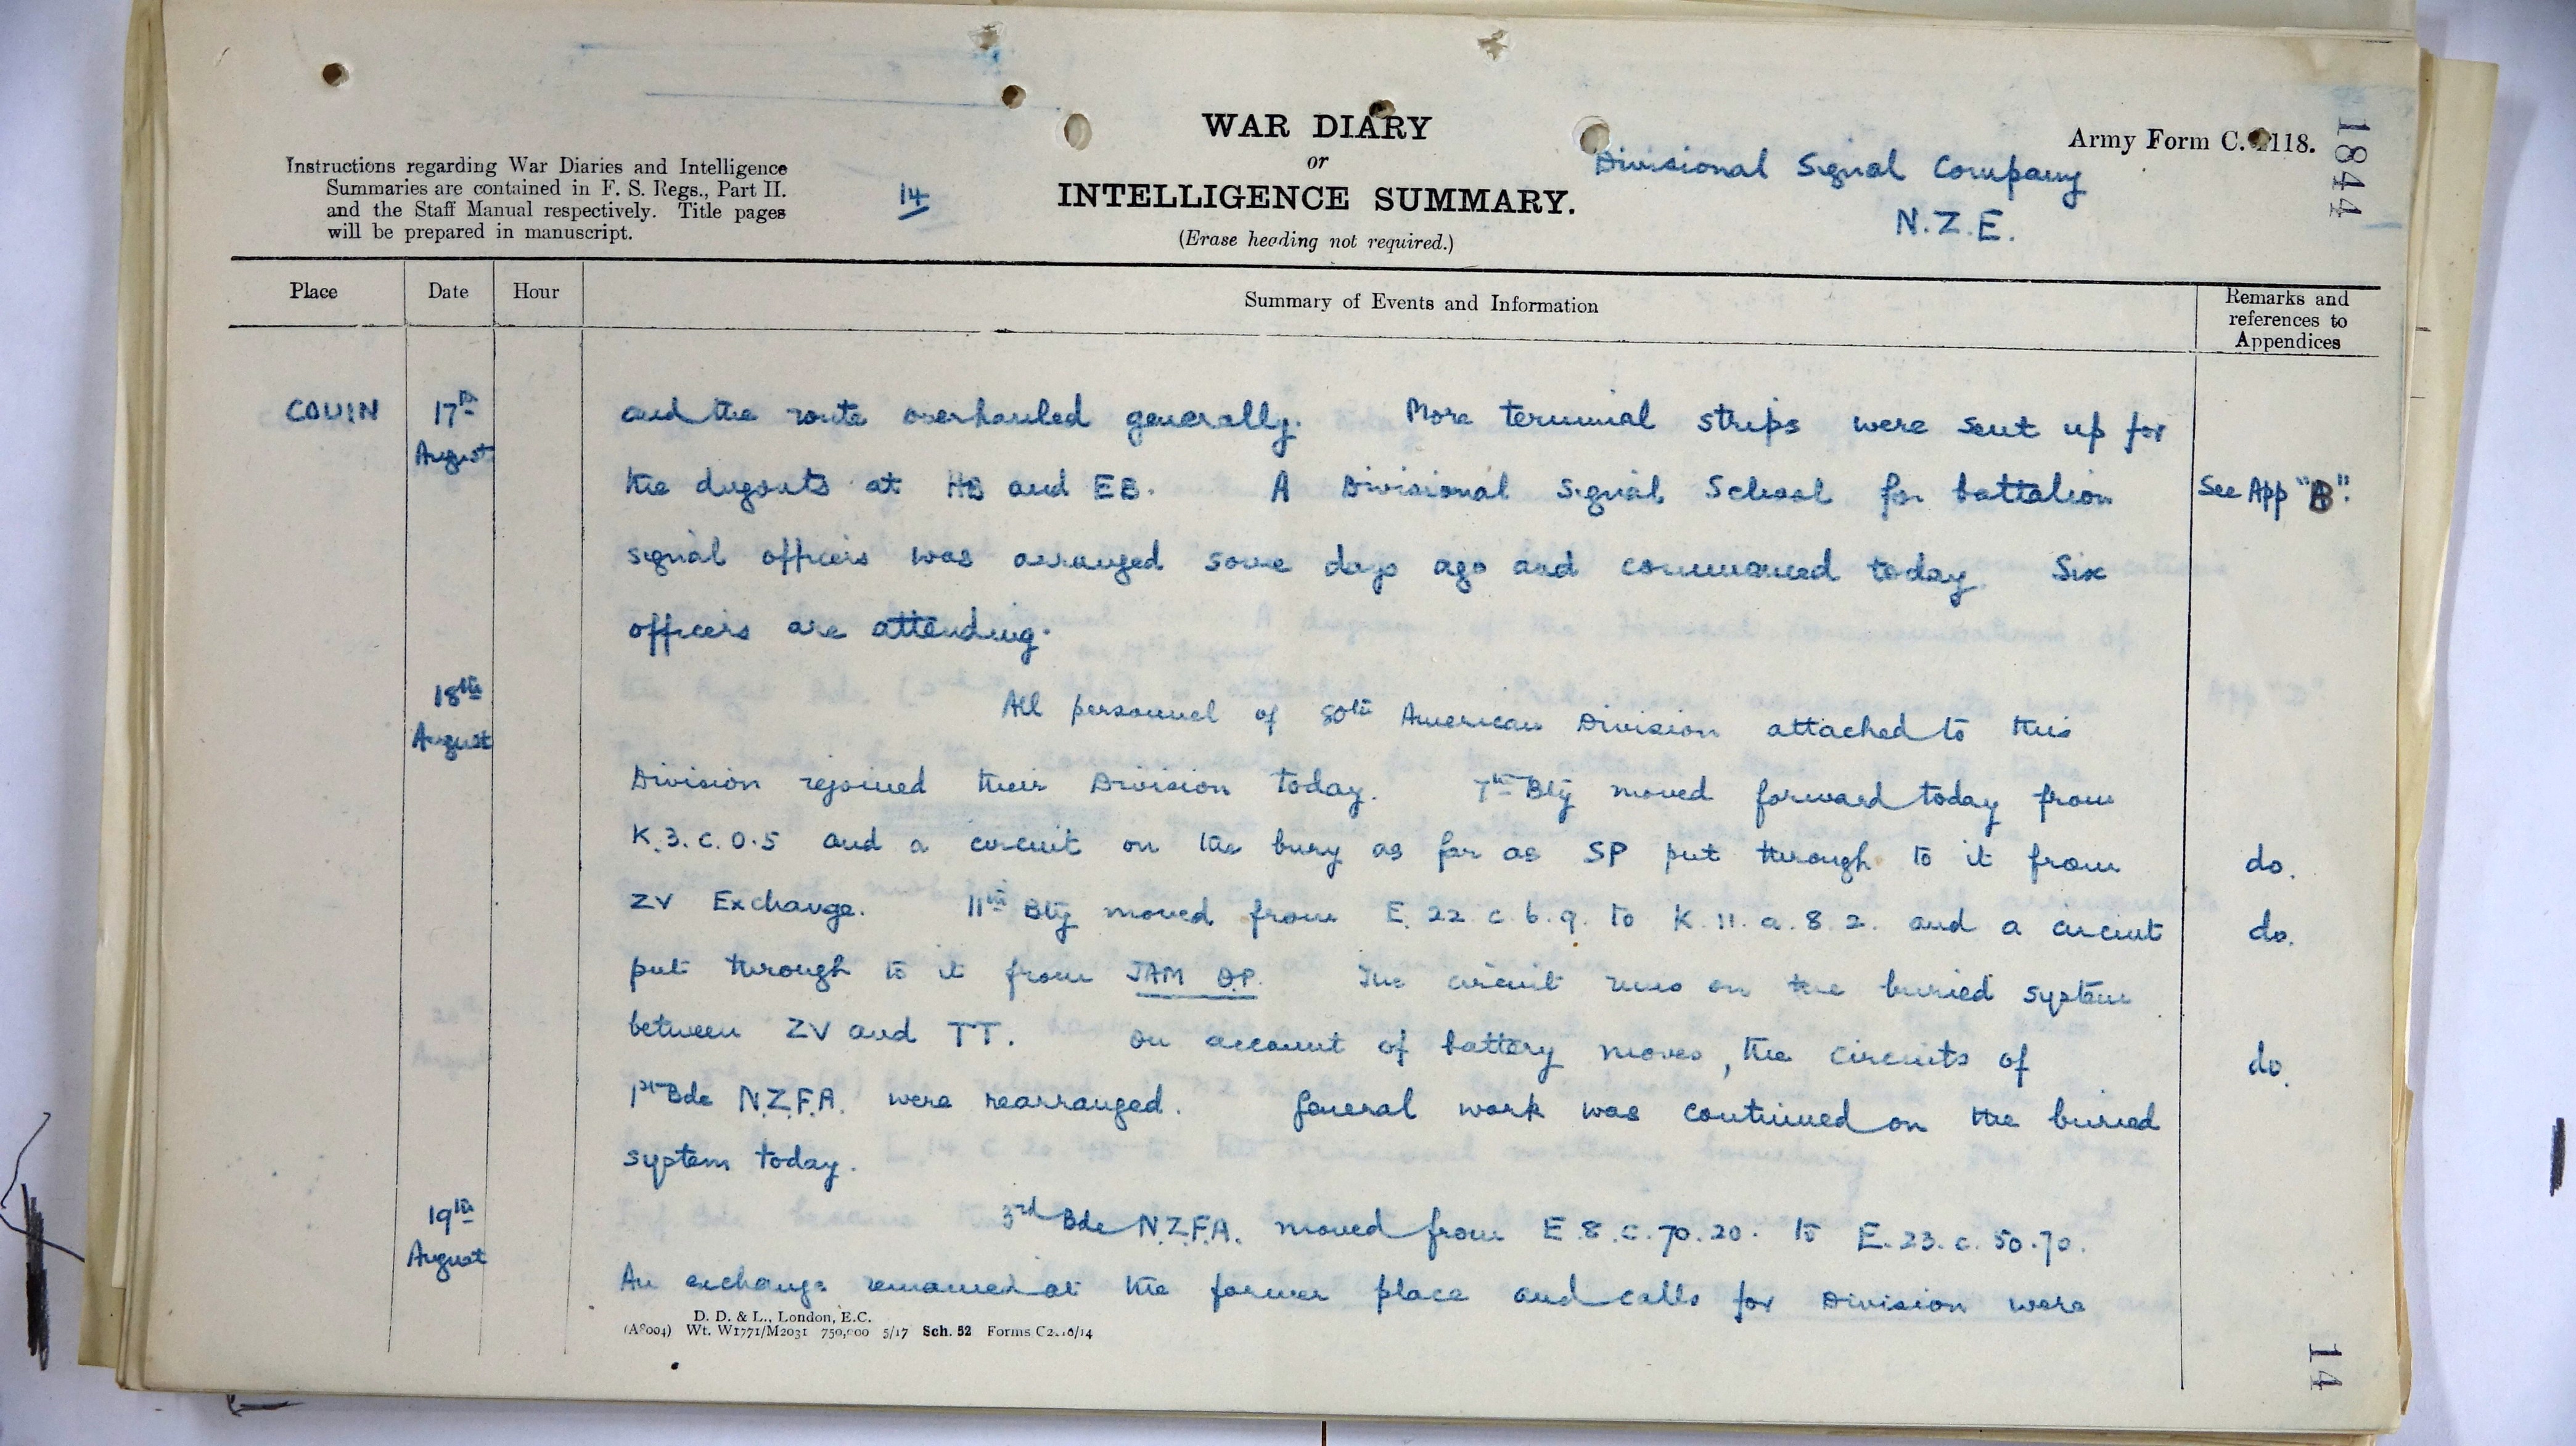 WAR DIARY
or
INTELLIGENCE SUMMARY.
(Erase heading not required.)
Army Form C. 2118.
1844
Instructions regarding War Diaries and Intelligence
Summaries are contained in F. S. Regs., Part II.
and the Staff Manual respectively. Title pages
will be prepared in manuscript.
14
Divisional Signal Company
N.Z.E.
Place Date Hour Summary of Events and Information Remarks and references to Appendices
COUIN 17th August and the route overhauled generally. More terminal strips were sent up for
the dugouts at HB and EB. A Divisional Signal School for battalion See App "B".
signal officers was arranged some days ago and commenced today. Six
officers are attending.
18th August All personnel of 80th American Division attached to this
Division rejoined their Division today. 7th Bty moved forward today from
K.3.c.0.5 and a circuit on the bury as far as SP put through to it from do.
ZV Exchange. 11th Bty moved from E.22.c.6.9. to K.11.a.8.2. and a circuit do.
put through to it from JAM O.P. The circuit runs on the buried system
between ZV and TT. On account of battery moves, the circuits of do.
1st Bde N.Z.F.A. were rearranged. General work was continued on the buried
system today.
19th August 3rd Bde N.Z.F.A. moved from E.8.c.70.20. to E.23.c.50.70.
An exchange remained at the former place and calls for Division were
D. D. & L., London, E.C.
(A8004) Wt. W1771/M2031 750,000 5/17 Sch. 52 Forms C2118/14
14